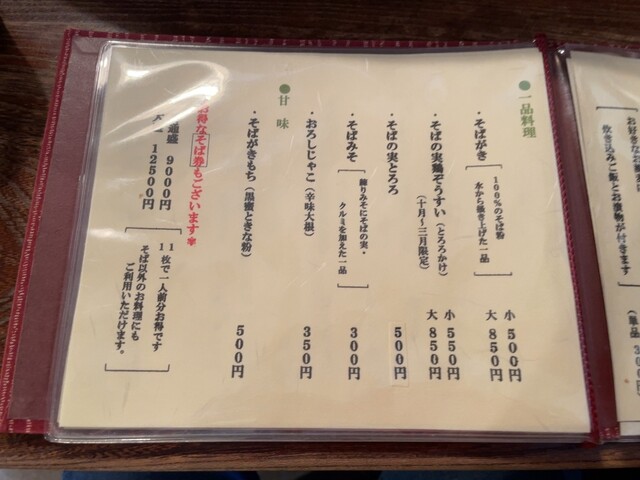 お好きなお蕎
炊き込みご飯とお漬物が付きます
(単品
●一品料理
・そばがき
100%のそば粉
水から掻き上げた一品
小 500円
大 850円
・そばの実鶏ぞうすい (とろろかけ)
(十月~三月限定)
小 550円
大 850円
・そばの実とろろ
500円
・そばみそ
練りみそにそばの実・
クルミを加えた一品
300円
・おろしじゃこ (辛味大根)
350円
●甘 味
・そばがきもち (黒蜜ときな粉)
500円
お得なそば券もございます*
普通盛 9000円
大盛 12500円
11枚で一人前分お得です
そば以外のお料理にも
ご利用いただけます。